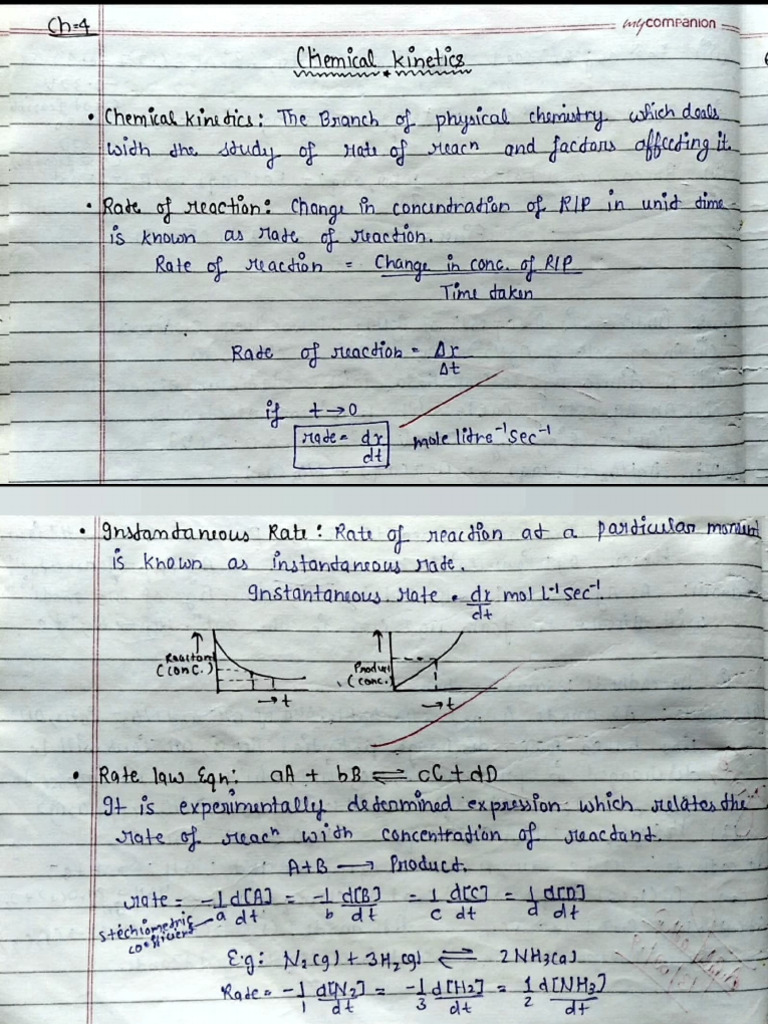 Ch=4
mycompanion
Chemical kinetics
• Chemical kinetics: The Branch of physical chemistry which deals
with the study of rate of reacⁿ and factors affecting it.
• Rate of reaction: Change in concuntration of R/P in unit time
is known as rate of reaction.
Rate of reaction = Change in conc. of R/P
Time taken
Rate of reaction = Δx
Δt
if t→0
rate = dx mole litre⁻¹ sec⁻¹
dt
• Instantaneous Rate: Rate of reaction at a particular moment
is known as instantaneous rate.
Instantaneous rate = dx mol L⁻¹ sec⁻¹
dt
Reactant (conc.) → t
Product (conc.) → t
• Rate law Eqn: aA + bB ⇌ cC + dD
It is experimentally determined expression which relates the
rate of reacⁿ with concentration of reactant.
A+B → Product.
rate = -1/a d[A]/dt = -1/b d[B]/dt = 1/c d[C]/dt = 1/d d[D]/dt
stechiometric
E.g: N₂(g) + 3H₂(g) ⇌ 2NH₃(g)
Rate = -1/1 d[N₂]/dt = -1/3 d[H₂]/dt = 1/2 d[NH₃]/dt